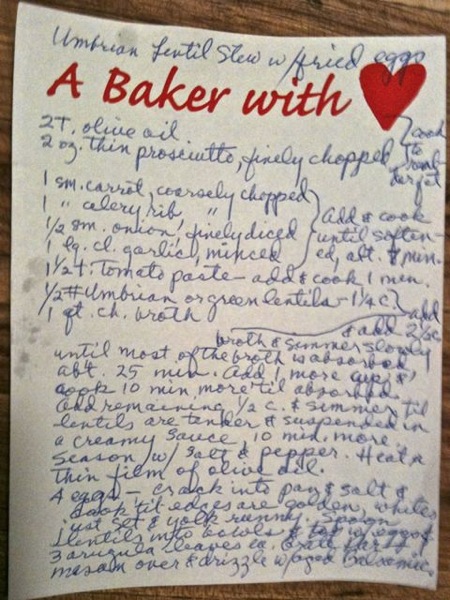 Umbrian Lentil Stew w/fried eggs
A Baker with
2T. olive oil
2 oz. thin prosciutto, finely chopped } cook to
1 sm. carrot, coarsely chopped
1 " celery rib, "
1/2 sm. onion, finely diced
1 lg. cl. garlic, minced } Add & cook until soften-ed, abt. 8 min.
1 1/2 t. Tomato paste - add & cook 1 min.
1/2 # Umbrian or green lentils - 1 1/4 c } add
1 qt. ch. broth & add 2 1/2 c
broth & simmer slowly
until most of the broth is absorbed
abt. 25 min. Add 1 more cup &
cook 10 min. more til absorbed.
Add remaining 1/2 c. & simmer til
lentils are tender & suspended in
a creamy sauce, 10 min. more
Season w/ salt & pepper. Heat a
thin film of olive oil.
4 eggs - crack into pan & salt &
cook til edges are golden, whites
just set & yolk runny. Spoon
lentils into bowls & top w/ eggs &
3 arugula leaves ea. Grate
over & drizzle w/aged Balsamic.